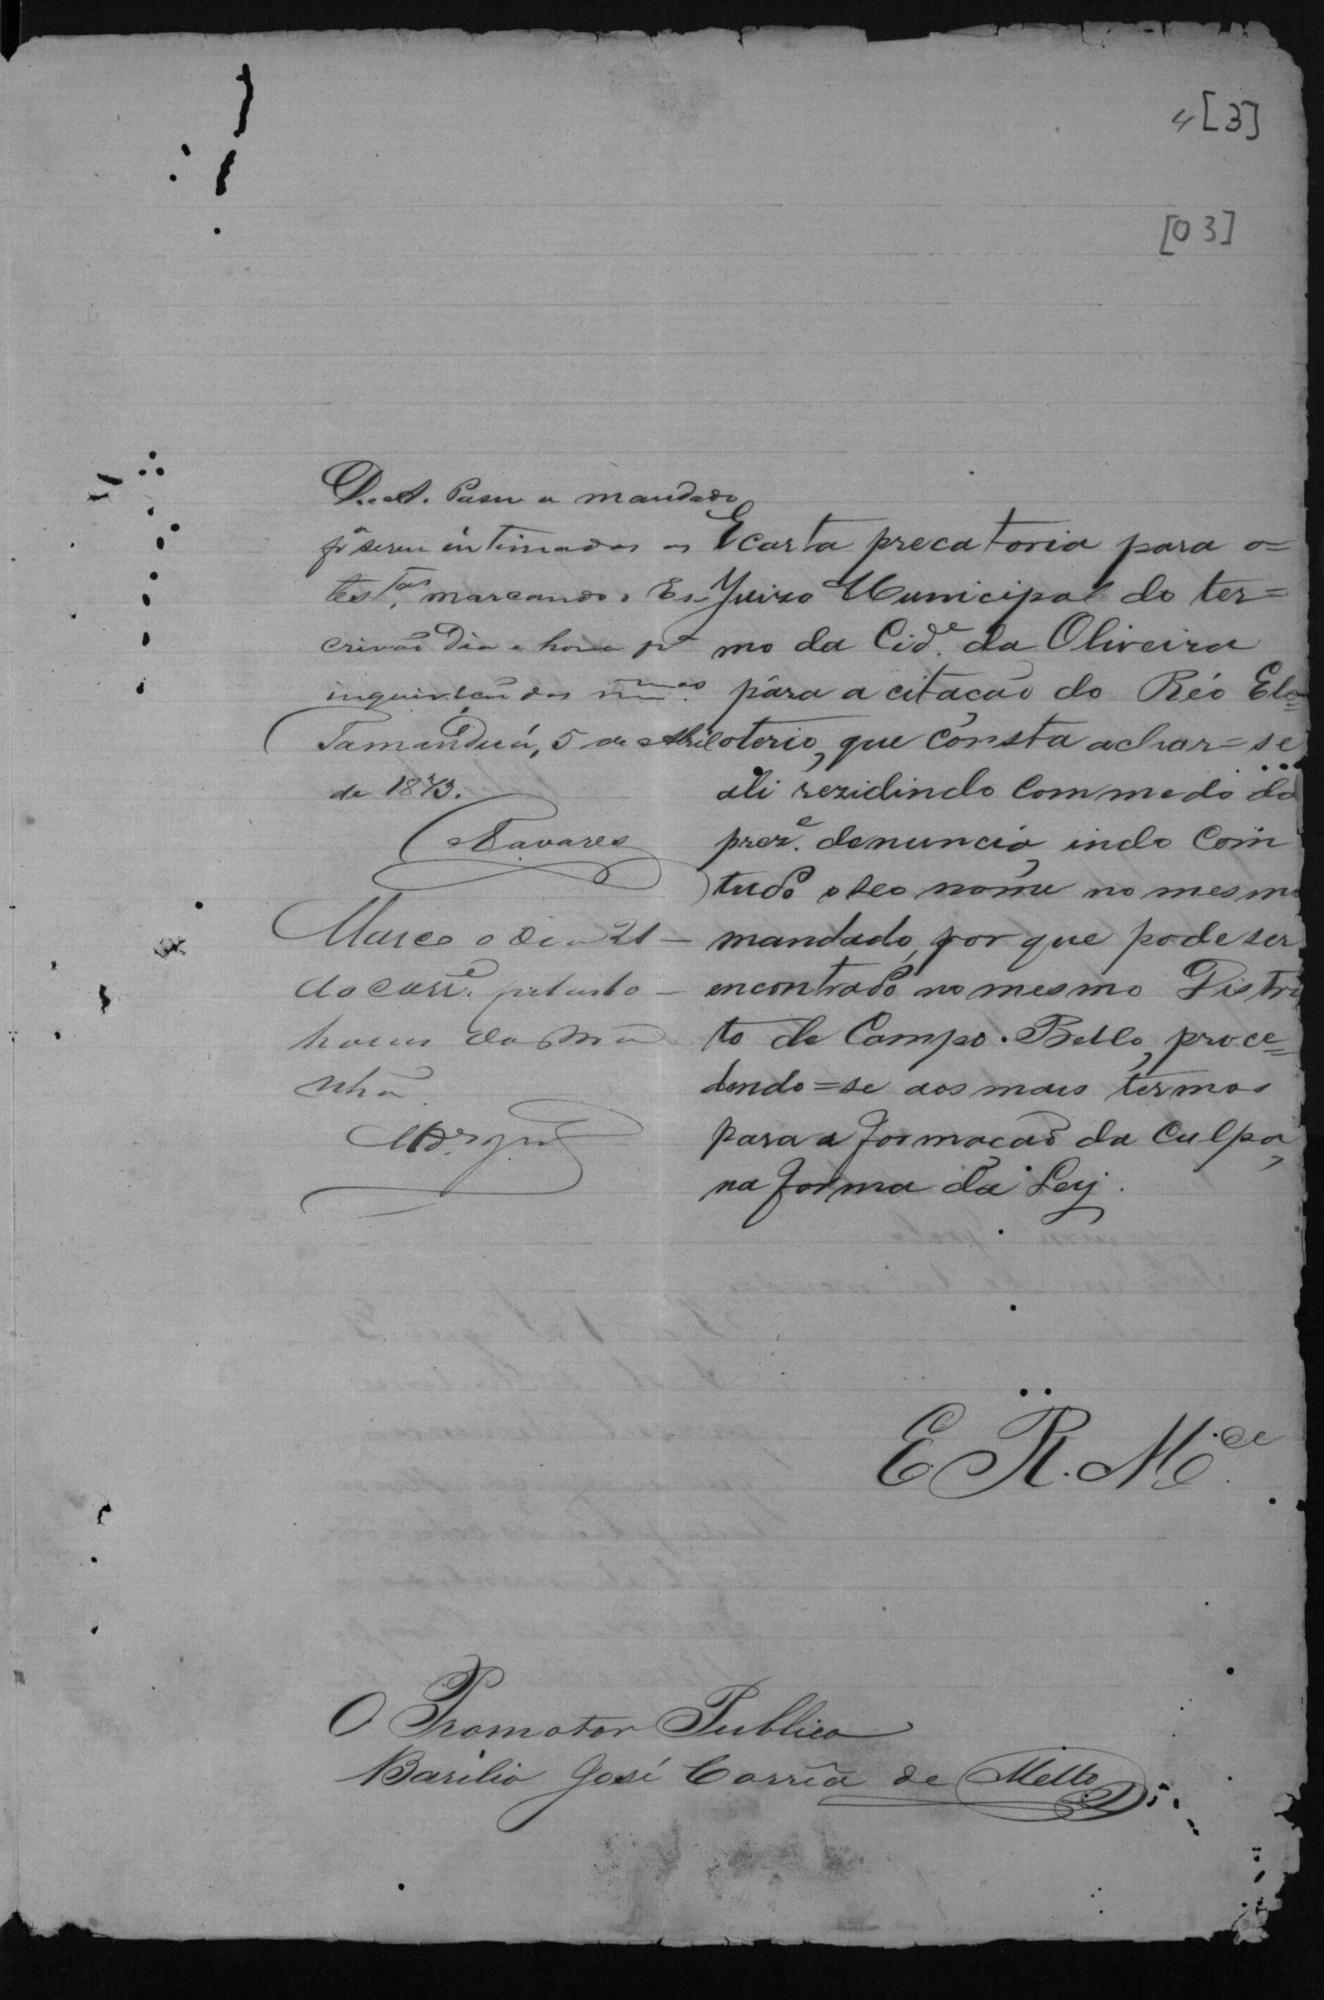 4 [3]
[03]
D. A. Passe o mandado
pª serem intimadas as
testas, marcando o Es-
crivão dia e hora pª
inquirição das mmas.
Tamanduá, 5 de Abril
de 1873.
Tavares
Marco o dia 21
do corre. pelas
horas da ma
nhã.
E carta precatoria para o=
Juizo Municipal do ter=
mo da Cide. da Oliveira
para a citação do Réo Ele=
oterio, que consta achar=se
ali rezidindo com medo da
preze. denuncia, indo com
tudo o seo nome no mesmo
mandado, por que pode ser
encontrado no mesmo Distri
to de Campo-Bello, proce=
dendo=se aos mais termos
para a formação da culpa,
na forma da Ley.
E. R. Mce.
O Promotor Publico
Basilio José Corrêa de Mello